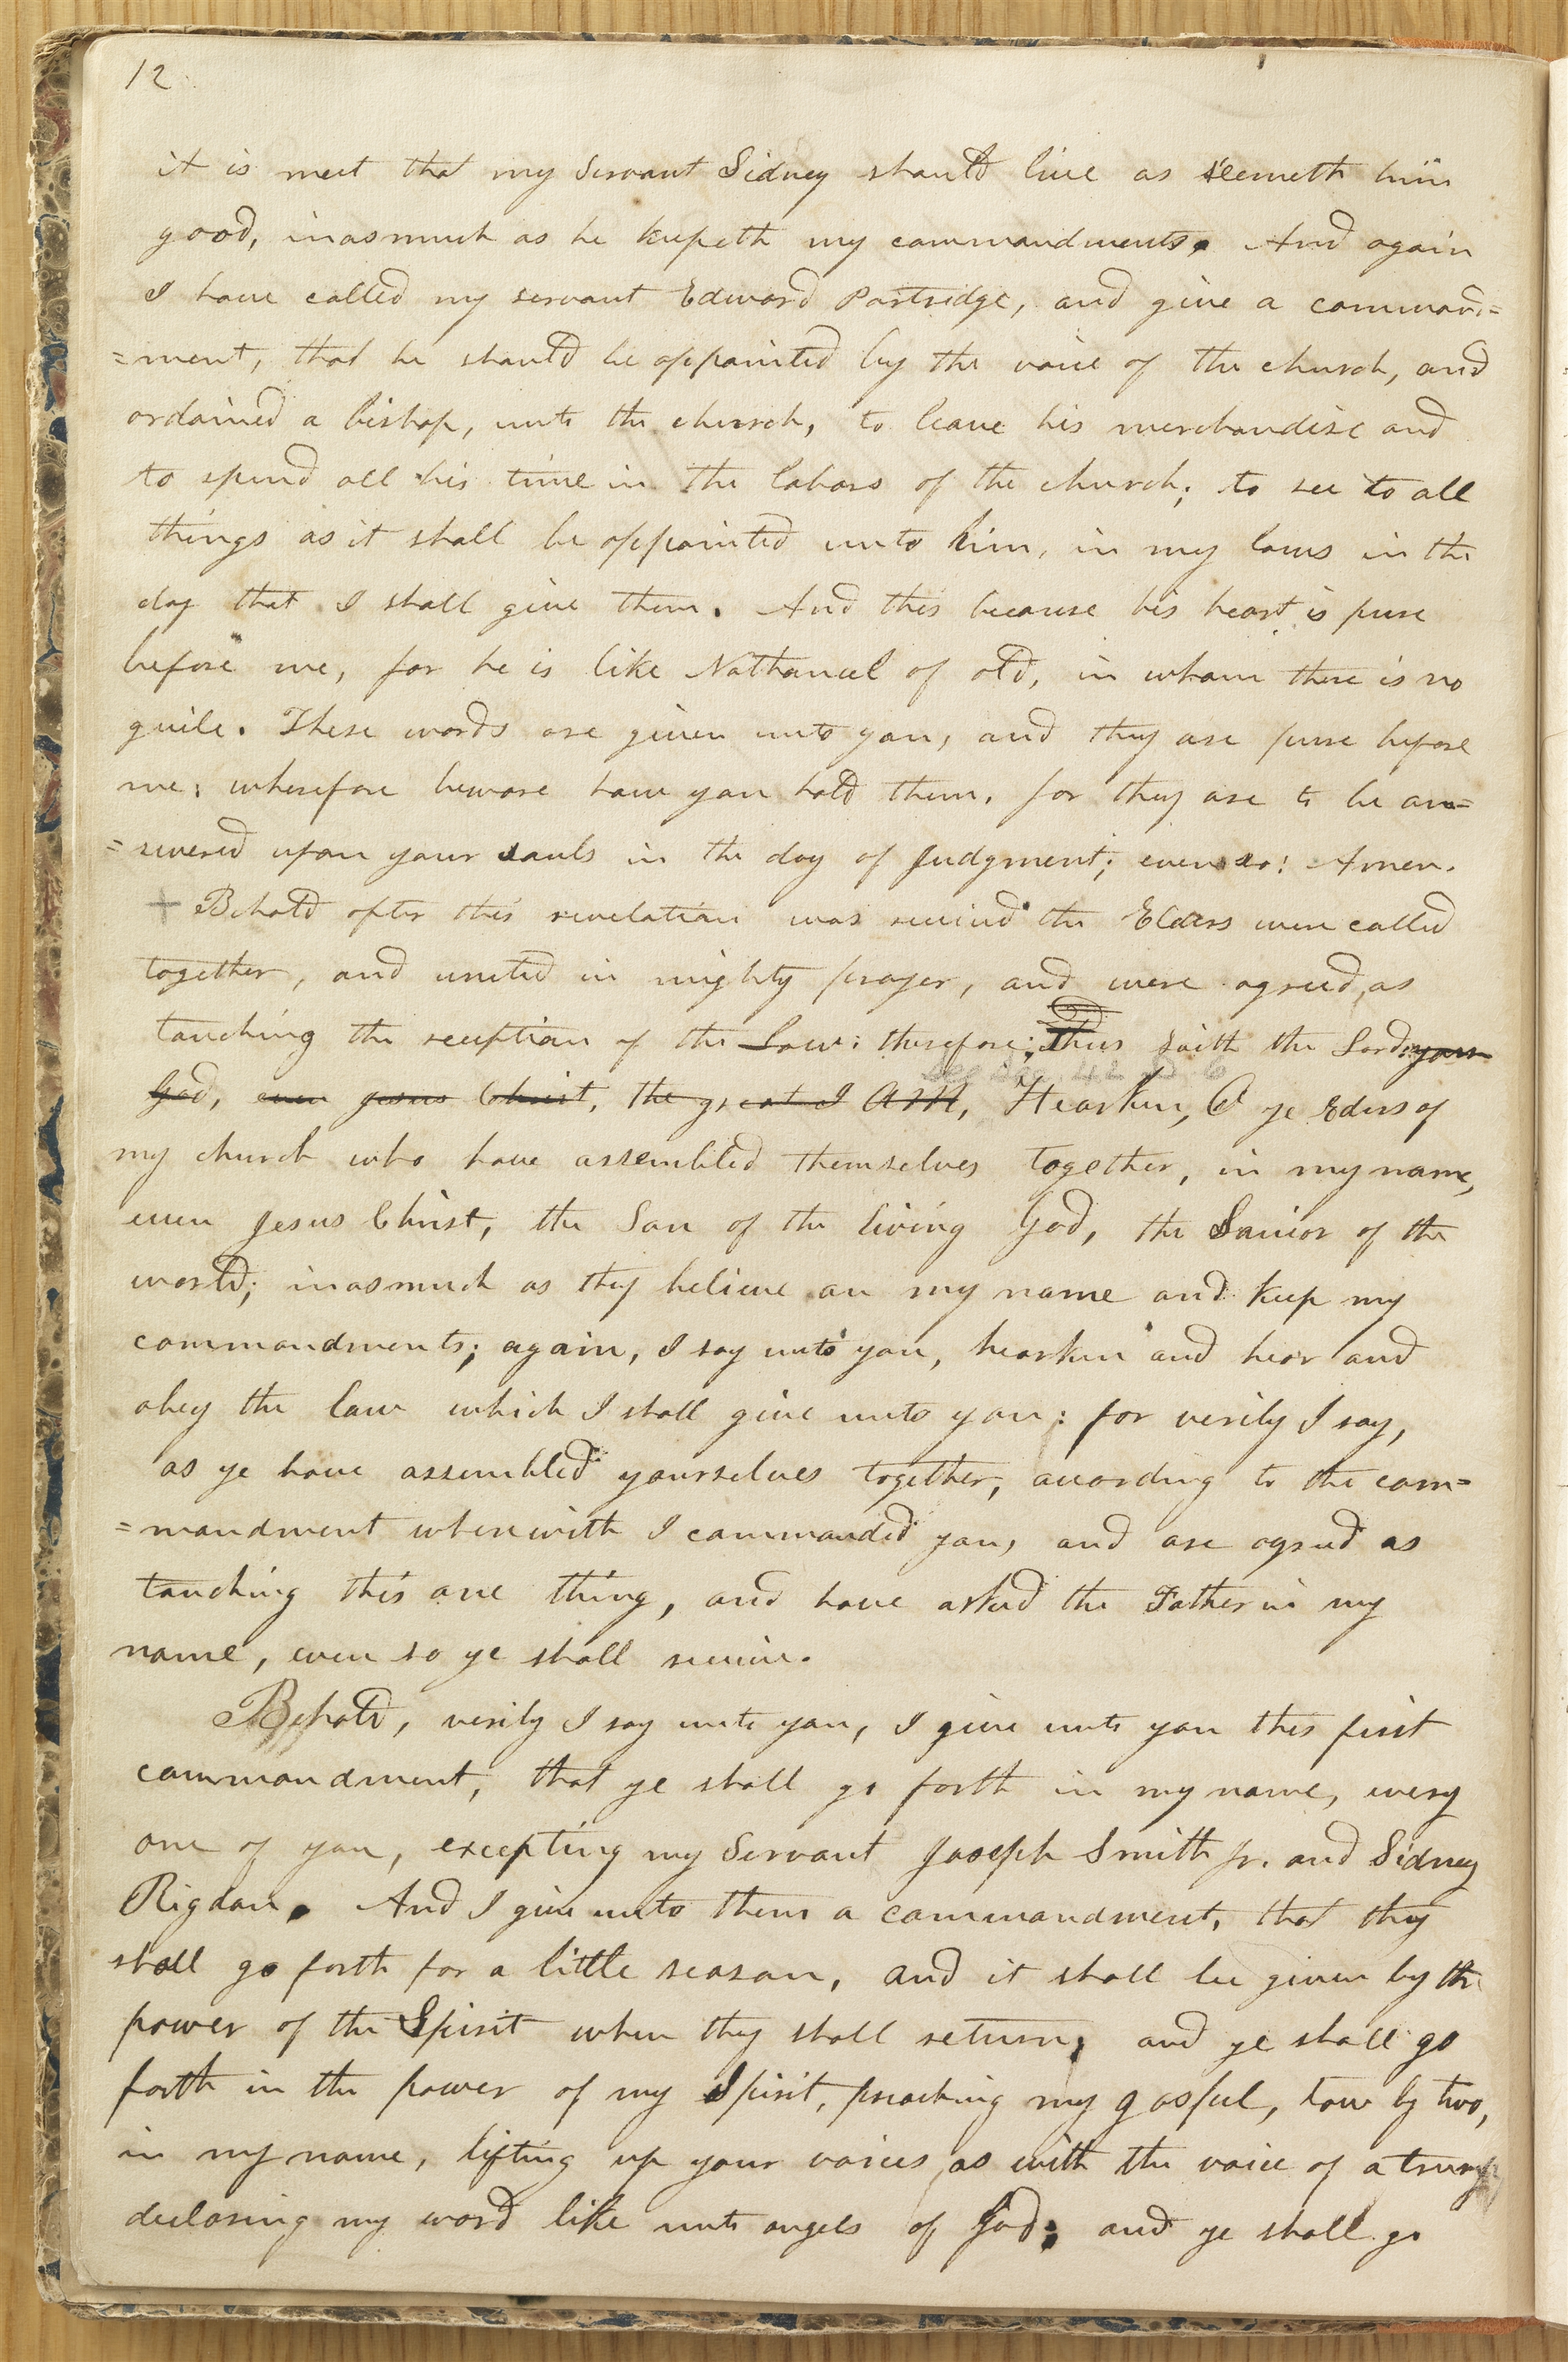 12
it is meet that my Servant Sidney should live as seemeth him
good, inasmuch as he keepeth my commandments. And again
I have called my servant Edward Partridge, and give a command=
=ment, that he should be appointed by the voice of the church, and
ordained a bishop, unto the church, to leave his merchandise and
to spend all his time in the labors of the church; to see to all
things as it shall be appointed unto him, in my laws in the
day that I shall give them. And this because his heart is pure
before me, for he is like Nathaneel of old, in whom there is no
guile. These words are given unto you, and they are pure before
me; wherefore beware how you hold them, for they are to be an=
=swered upon your souls in the day of Judgment; even so! Amen.
+ Behold after this revelation was received the Elders were called
together, and united in mighty prayer, and were agreed, as
touching the reception of the Law: therefore; thus saith the Lord your
God, even Jesus Christ, the great I AM, Hearken, O ye Elders of
my church who have assembled themselves together, in my name,
even Jesus Christ, the Son of the living God, the Savior of the
world; inasmuch as they believe on my name and keep my
commandments; again, I say unto you, hearken and hear and
obey the law which I shall give unto you: for verily I say,
as ye have assembled yourselves together, according to the com=
=mandment wherewith I commanded you, and are agreed as
touching this one thing, and have asked the Father in my
name, even so ye shall receive.
Behold, verily I say unto you, I give unto you this first
commandment, that ye shall go forth in my name, every
one of you, excepting my Servant Joseph Smith jr. and Sidney
Rigdon. And I give unto them a commandment, that they
shall go forth for a little season, and it shall be given by the
power of the Spirit when they shall return; and ye shall go
forth in the power of my Spirit, preaching my gospel, tow by two,
in my name, lifting up your voices, as with the voice of a trump,
declaring my word like unto angels of God; and ye shall go